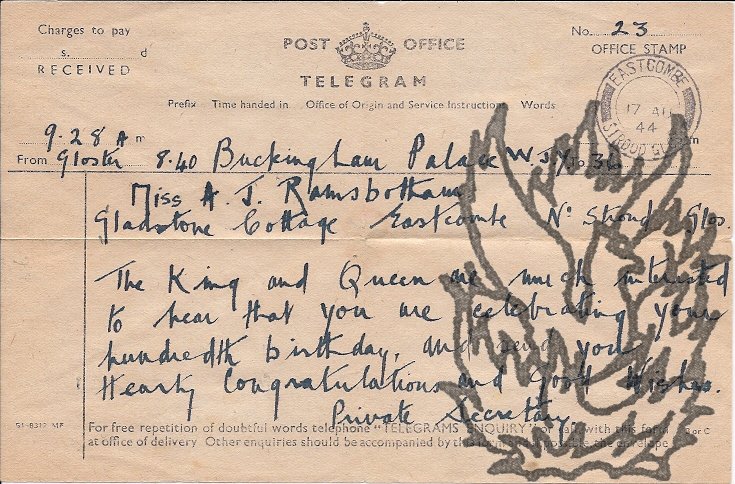 Charges to pay
s. d
RECEIVED
POST OFFICE
TELEGRAM
No. 23
OFFICE STAMP
EASTCOMBE
17 AU
44
STROOD GLOS
Prefix Time handed in Office of Origin and Service Instructions Words
9.28 A m
From Gloster 8.40 Buckingham Palace 36
Miss A. J. Ramsbotham
Gladstone Cottage Eastcombe Nr Stroud Glos.
The King and Queen are much interested
to hear that you are celebrating your
hundredth birthday, and send you
Hearty Congratulations and good Wishes.
Private Secretary
51-8312 MF
For free repetition of doubtful words telephone "TELEGRAMS ENQUIRY" or call, with this form
at office of delivery Other enquiries should be accompanied by this form and the envelope
B or C